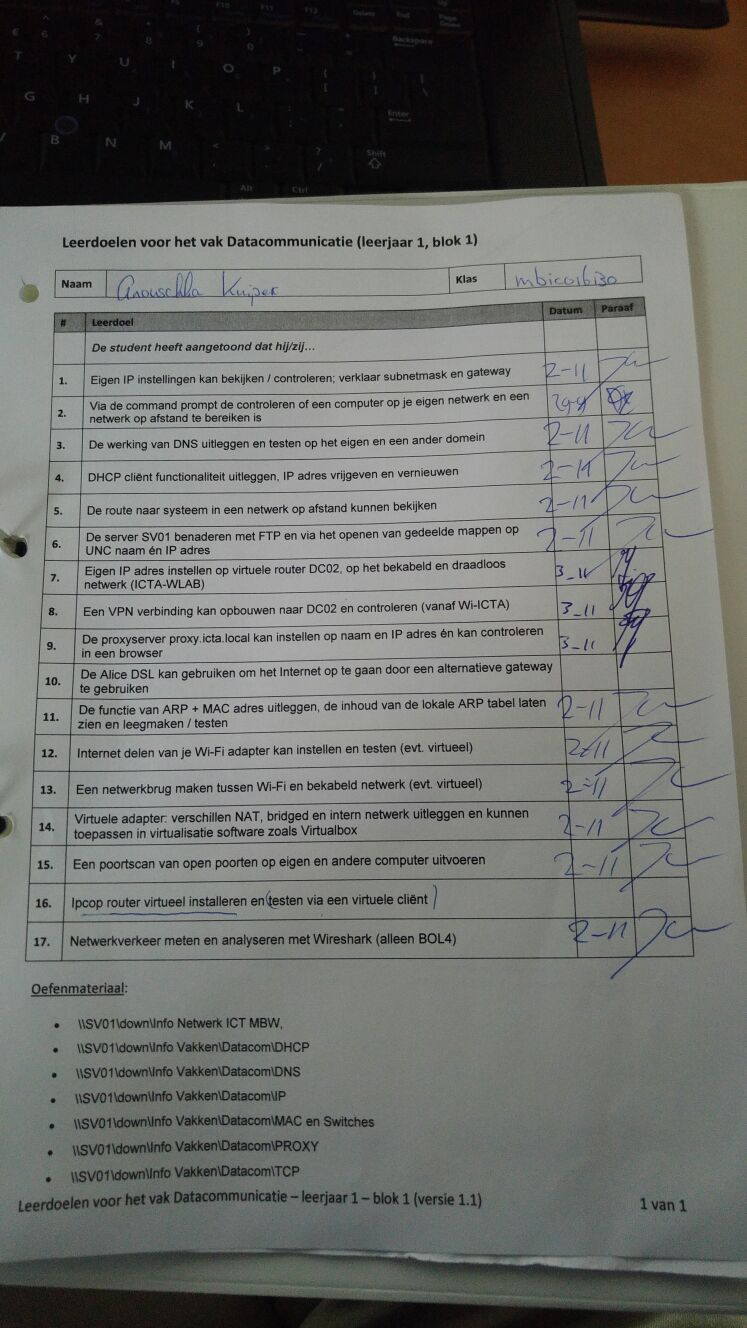 Delete End Page Down
Backspace
T Y U I O P
G H J K L Enter
B N M Shift
Alt Ctrl
Leerdoelen voor het vak Datacommunicatie (leerjaar 1, blok 1)
Naam Anouschka Kuiper Klas
# Leerdoel Datum Paraaf
De student heeft aangetoond dat hij/zij…
1. Eigen IP instellingen kan bekijken / controleren; verklaar subnetmask en gateway 2-11
2. Via de command prompt de controleren of een computer op je eigen netwerk en een
netwerk op afstand te bereiken is
3. De werking van DNS uitleggen en testen op het eigen en een ander domein 2-11
4. DHCP cliënt functionaliteit uitleggen, IP adres vrijgeven en vernieuwen 2-11
5. De route naar systeem in een netwerk op afstand kunnen bekijken 2-11
6. De server SV01 benaderen met FTP en via het openen van gedeelde mappen op
UNC naam én IP adres 2-11
7. Eigen IP adres instellen op virtuele router DC02, op het bekabeld en draadloos
netwerk (ICTA-WLAB) 3-11
8. Een VPN verbinding kan opbouwen naar DC02 en controleren (vanaf Wi-ICTA) 3-11
9. De proxyserver proxy.icta.local kan instellen op naam en IP adres én kan controleren
in een browser 3-11
10. De Alice DSL kan gebruiken om het Internet op te gaan door een alternatieve gateway
te gebruiken
11. De functie van ARP + MAC adres uitleggen, de inhoud van de lokale ARP tabel laten
zien en leegmaken / testen 2-11
12. Internet delen van je Wi-Fi adapter kan instellen en testen (evt. virtueel) 2-11
13. Een netwerkbrug maken tussen Wi-Fi en bekabeld netwerk (evt. virtueel) 2-11
14. Virtuele adapter: verschillen NAT, bridged en intern netwerk uitleggen en kunnen
toepassen in virtualisatie software zoals Virtualbox 2-11
15. Een poortscan van open poorten op eigen en andere computer uitvoeren 2-11
16. Ipcop router virtueel installeren en (testen via een virtuele cliënt)
17. Netwerkverkeer meten en analyseren met Wireshark (alleen BOL4) 2-11
Oefenmateriaal:
• \\SV01\down\Info Netwerk ICT MBW,
• \\SV01\down\Info Vakken\Datacom\DHCP
• \\SV01\down\Info Vakken\Datacom\DNS
• \\SV01\down\Info Vakken\Datacom\IP
• \\SV01\down\Info Vakken\Datacom\MAC en Switches
• \\SV01\down\Info Vakken\Datacom\PROXY
• \\SV01\down\Info Vakken\Datacom\TCP
Leerdoelen voor het vak Datacommunicatie – leerjaar 1 – blok 1 (versie 1.1) 1 van 1